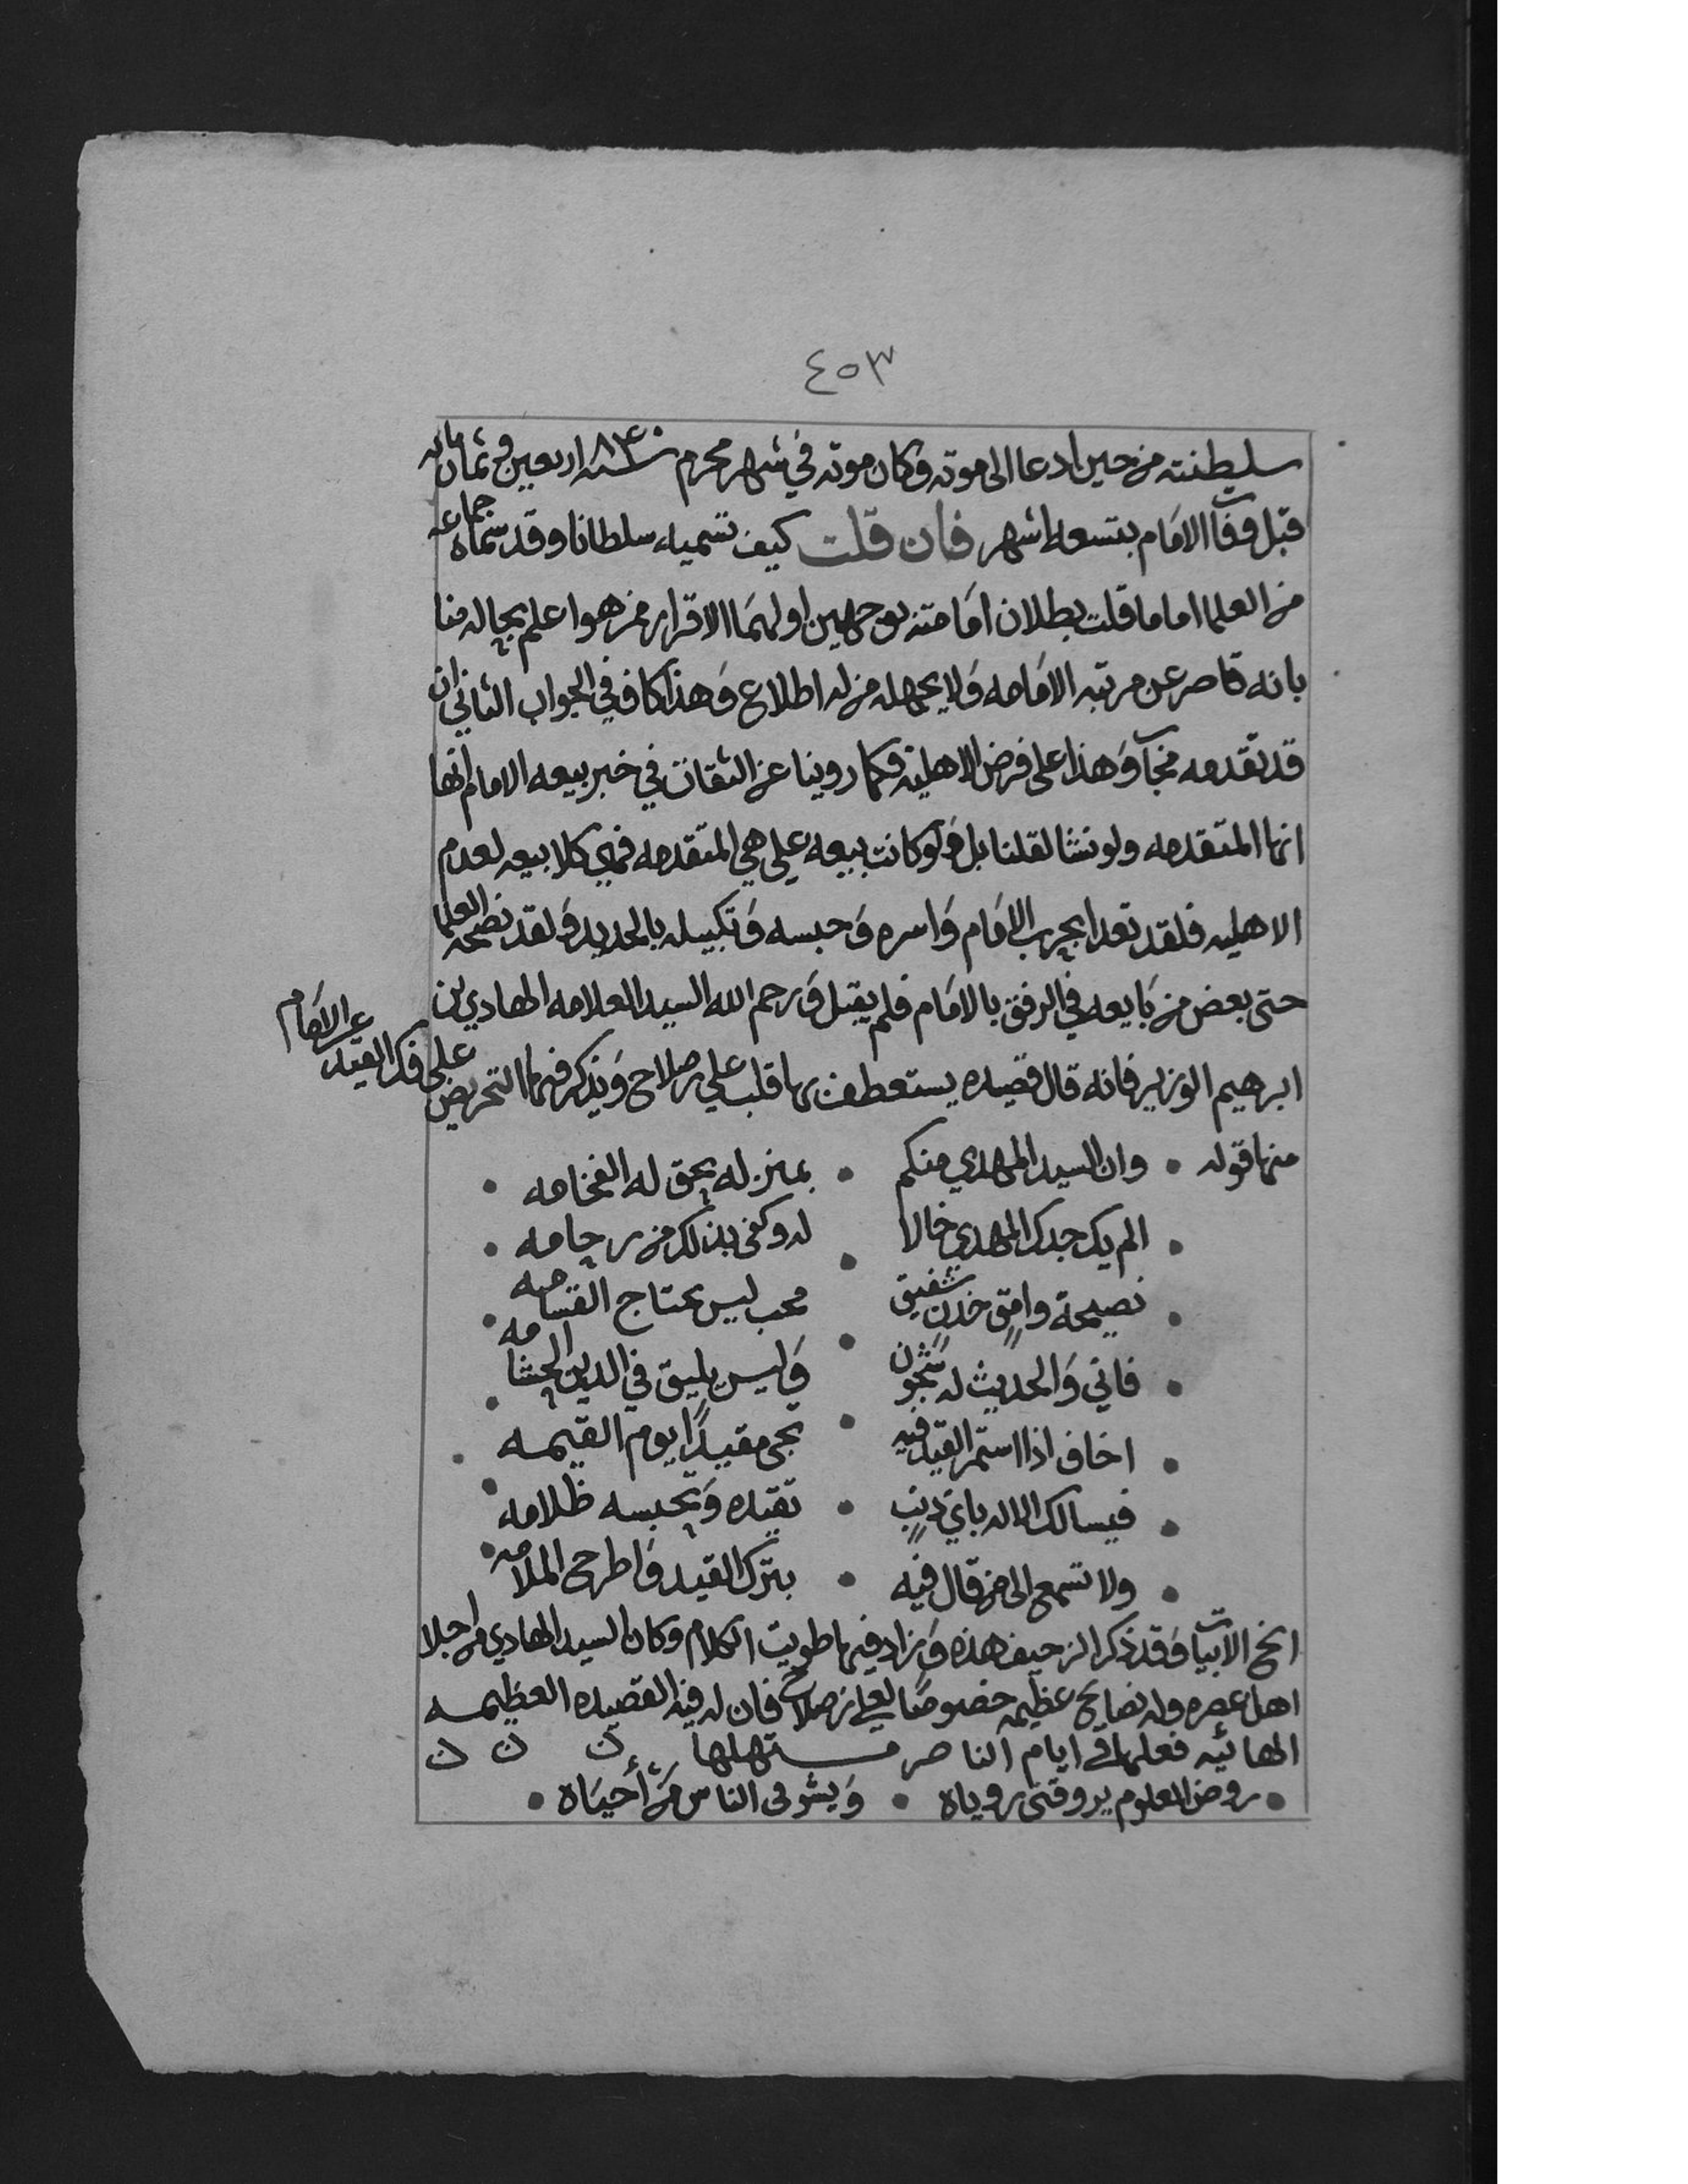 ٤٥٣
سلطنته من حين ادعا الى موته وكان موته في شهر محرم سنه ٨٤٠ اربعين وثمان مائه
قبل وفات الامام بتسعه اشهر فان قلت كيف تسمياه سلطانا وقد سماه جماعه
من العلما اماما قلت بطلان امامته بوجهين اولهما الاقرار من هو اعلم بحاله منا
بانه قاصر عن مرتبه الامامه ولا يجهله من له اطلاع وهذا كاف في الجواب الثاني ان
قد تقدمه مجآب وهذا على فرض الاهليه فكما روينا عن الثقات في خبر بيعه الامام انها
انها المتقدمه ولو نشا لقلنا بل ولو كانت بيعه علي هي المتقدمه فهي كلا بيعه لعدم
الاهليه فلقد تعدا بحرب الامام واسره وحبسه وتكبيله بالحديد ولقد نصحه العلما
حتى بعض من بايعه في الرفق بالامام فلم يقبل ورحم الله السيد العلامه الهادي بن
ابرهيم الوزير فانه قال قصيده يستعطف بها قلب علي بن صلاح ويذكر فيها التحريض
على فك القيد عن الامام
منها قوله • وان السيد المهدي منكم • بمنزله يحق له الفخامه •
• الم يك جدك المهدي خالا • له وكفى بذلك من رجامه •
• نصيحة وامق خدن شفيق • محب ليس يحتاج القسامه •
• فاني والحديث له شجون • وليس يليق في الدين الحشامه •
• اخاف اذا استمر القيد فيه • يجى مقيدًا يوم القيمه •
• فيسالك الاله باي ذنب • تقيده وتحبسه ظلامه •
• ولا تسمع الى من قال فيه • بترك القيد واطرح الملامه •
الخ الابيات وقد ذكر الزحيف هذه وزاد فيها طويت الكلام وكان السيد الهادي من اجلا
اهل عصره وله نصايح عظيمه خصوصا لعلي بن صلاح فان له فيه القصيده العظيمه
الهائيه فعلها في ايام الناصر مستهلها ن ن ن ن
• روض العلوم يروقني روياه • ويشوقى الناس من أحياه •